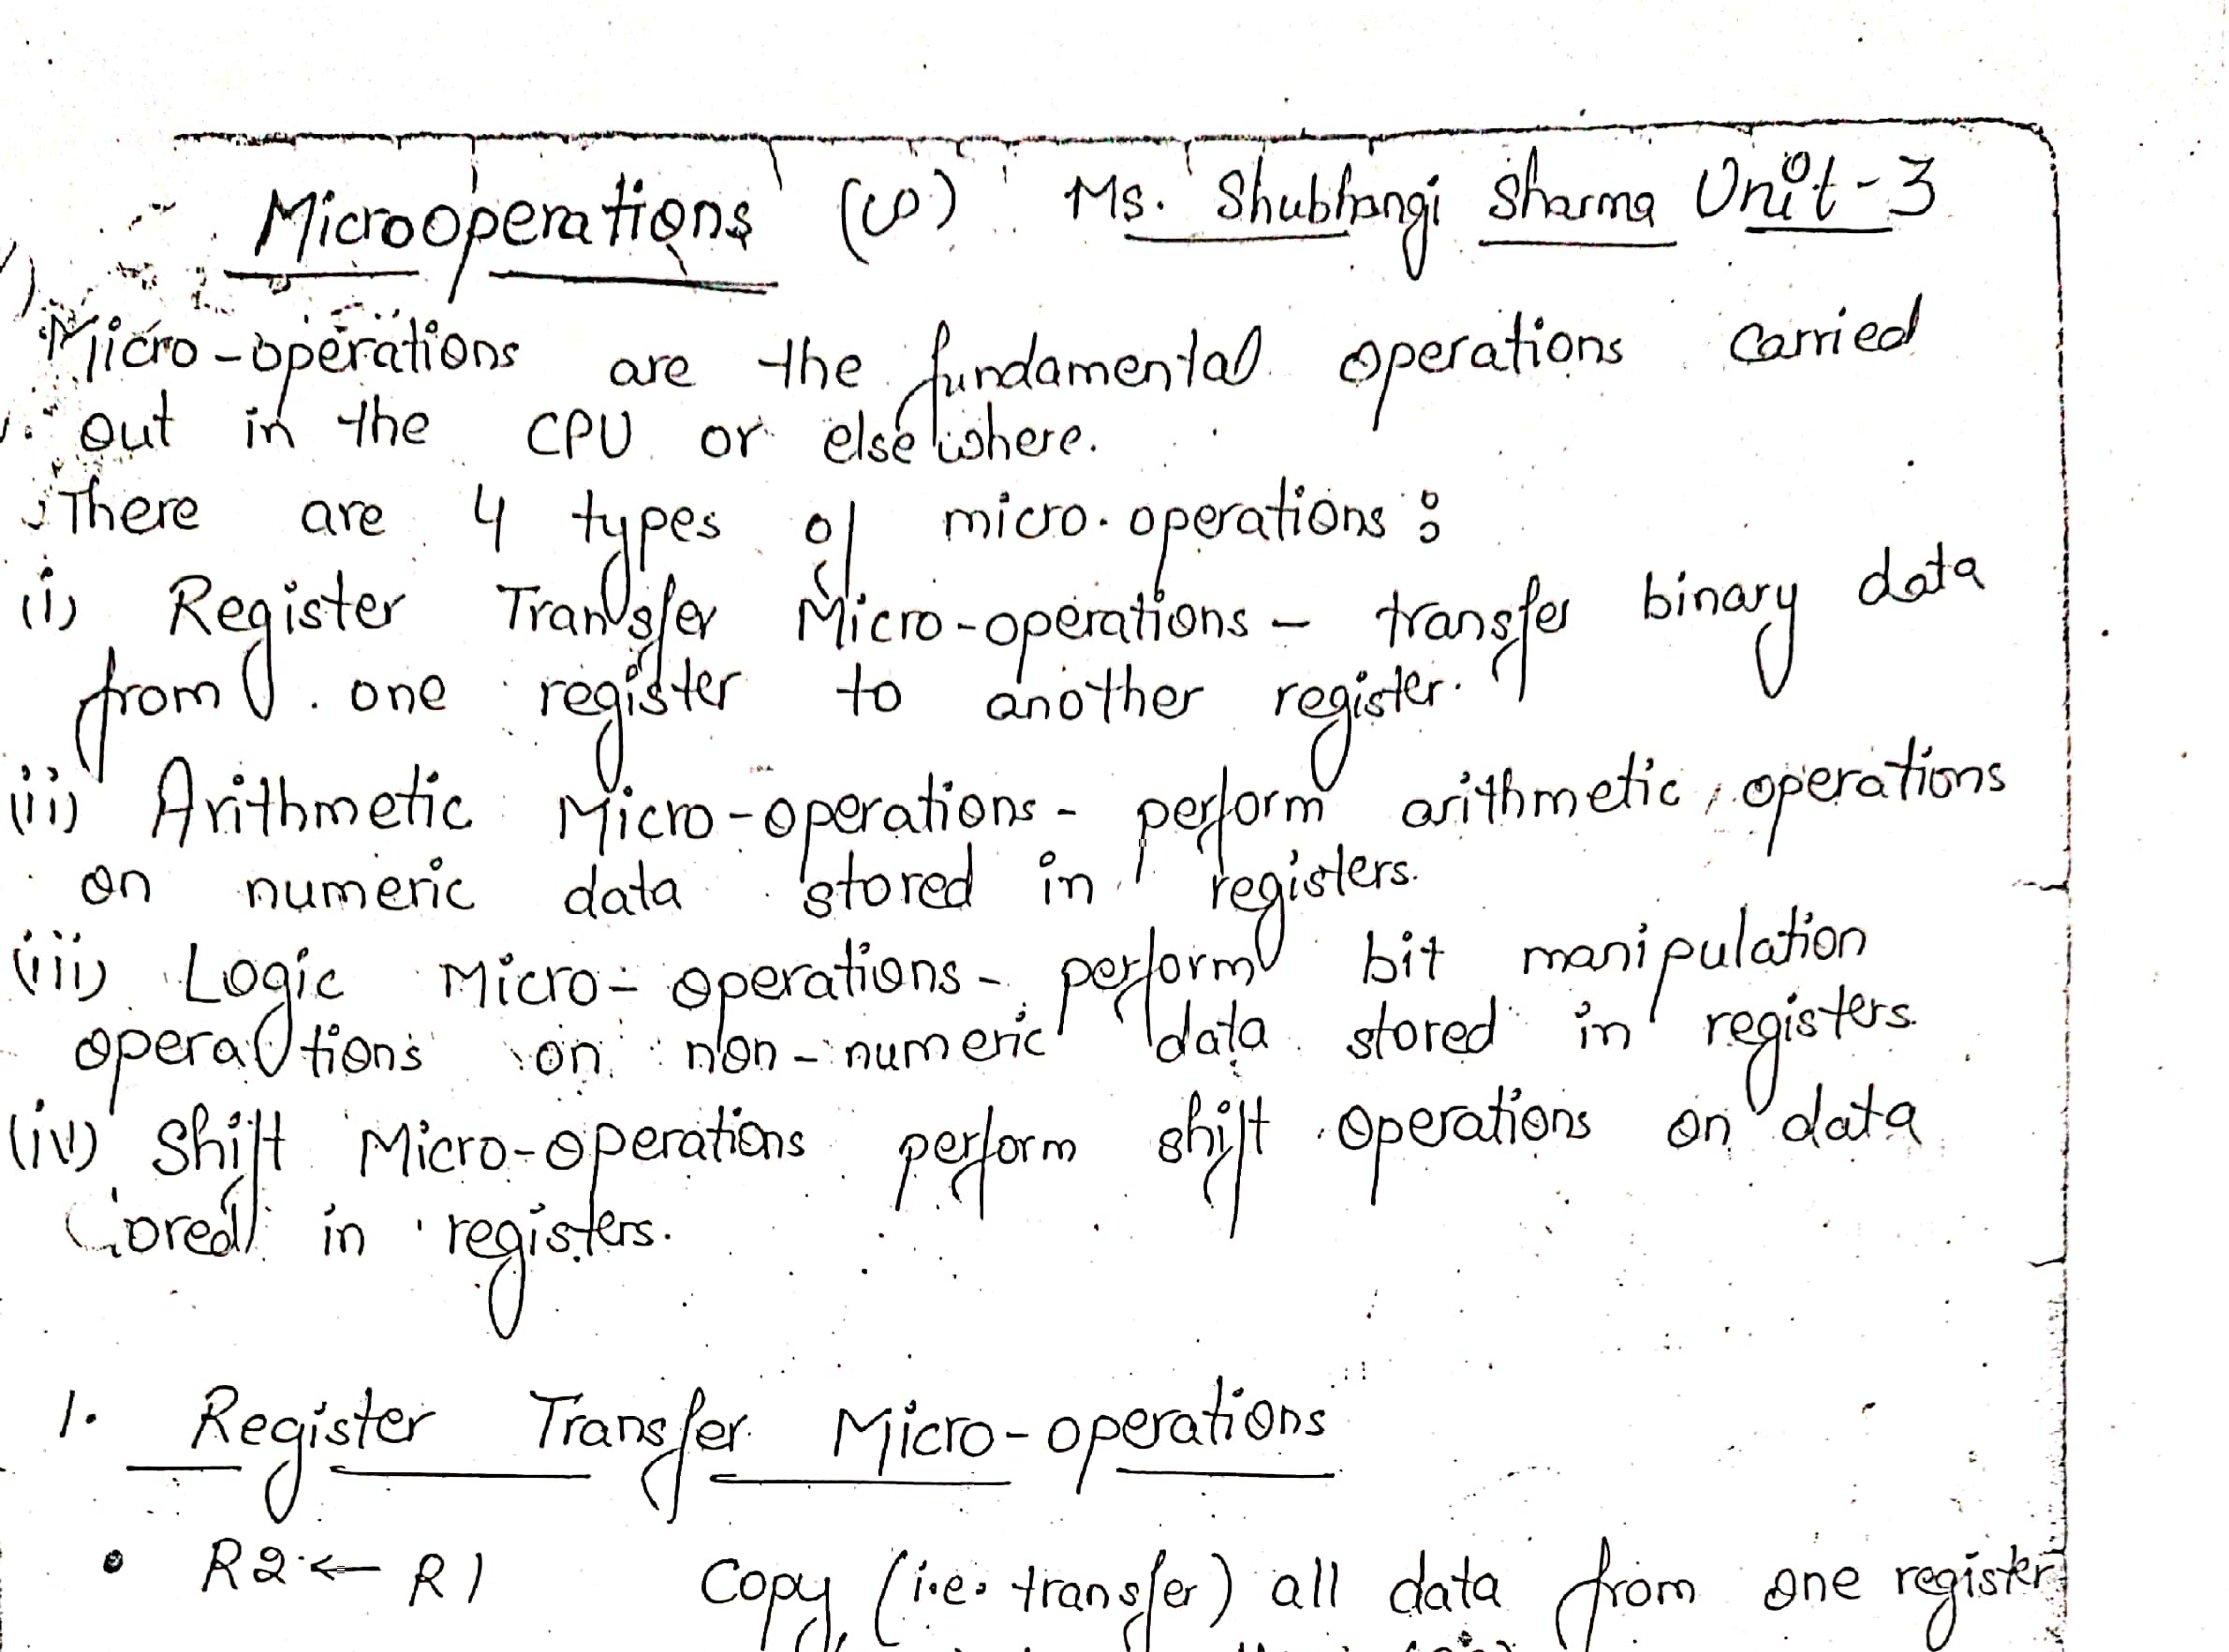 Microoperations Ms. Shubhangi Sharma Unit-3
Micro-operations are the fundamental operations carried
out in the CPU or elsewhere.
There are 4 types of micro-operations:
(i) Register Transfer Micro-operations - transfer binary data
from one register to another register.
(ii) Arithmetic Micro-operations - perform arithmetic operations
on numeric data stored in registers.
(iii) Logic Micro-operations - perform bit manipulation
operations on non-numeric data stored in registers.
(iv) Shift Micro-operations perform shift operations on data
stored in registers.
1. Register Transfer Micro-operations
• R2 ← R1 Copy (i.e. transfer) all data from one register